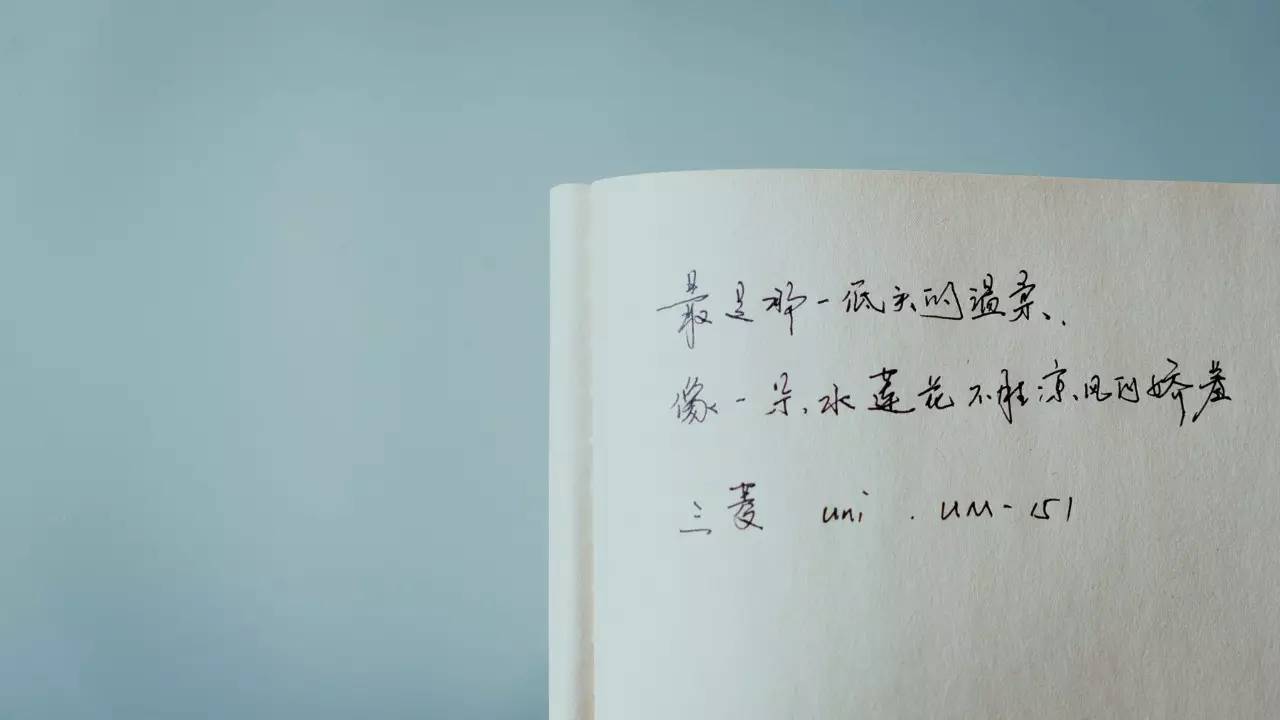 最是那一低头的温柔、
像一朵水莲花不胜凉风的娇羞
三菱 uni . UM-151